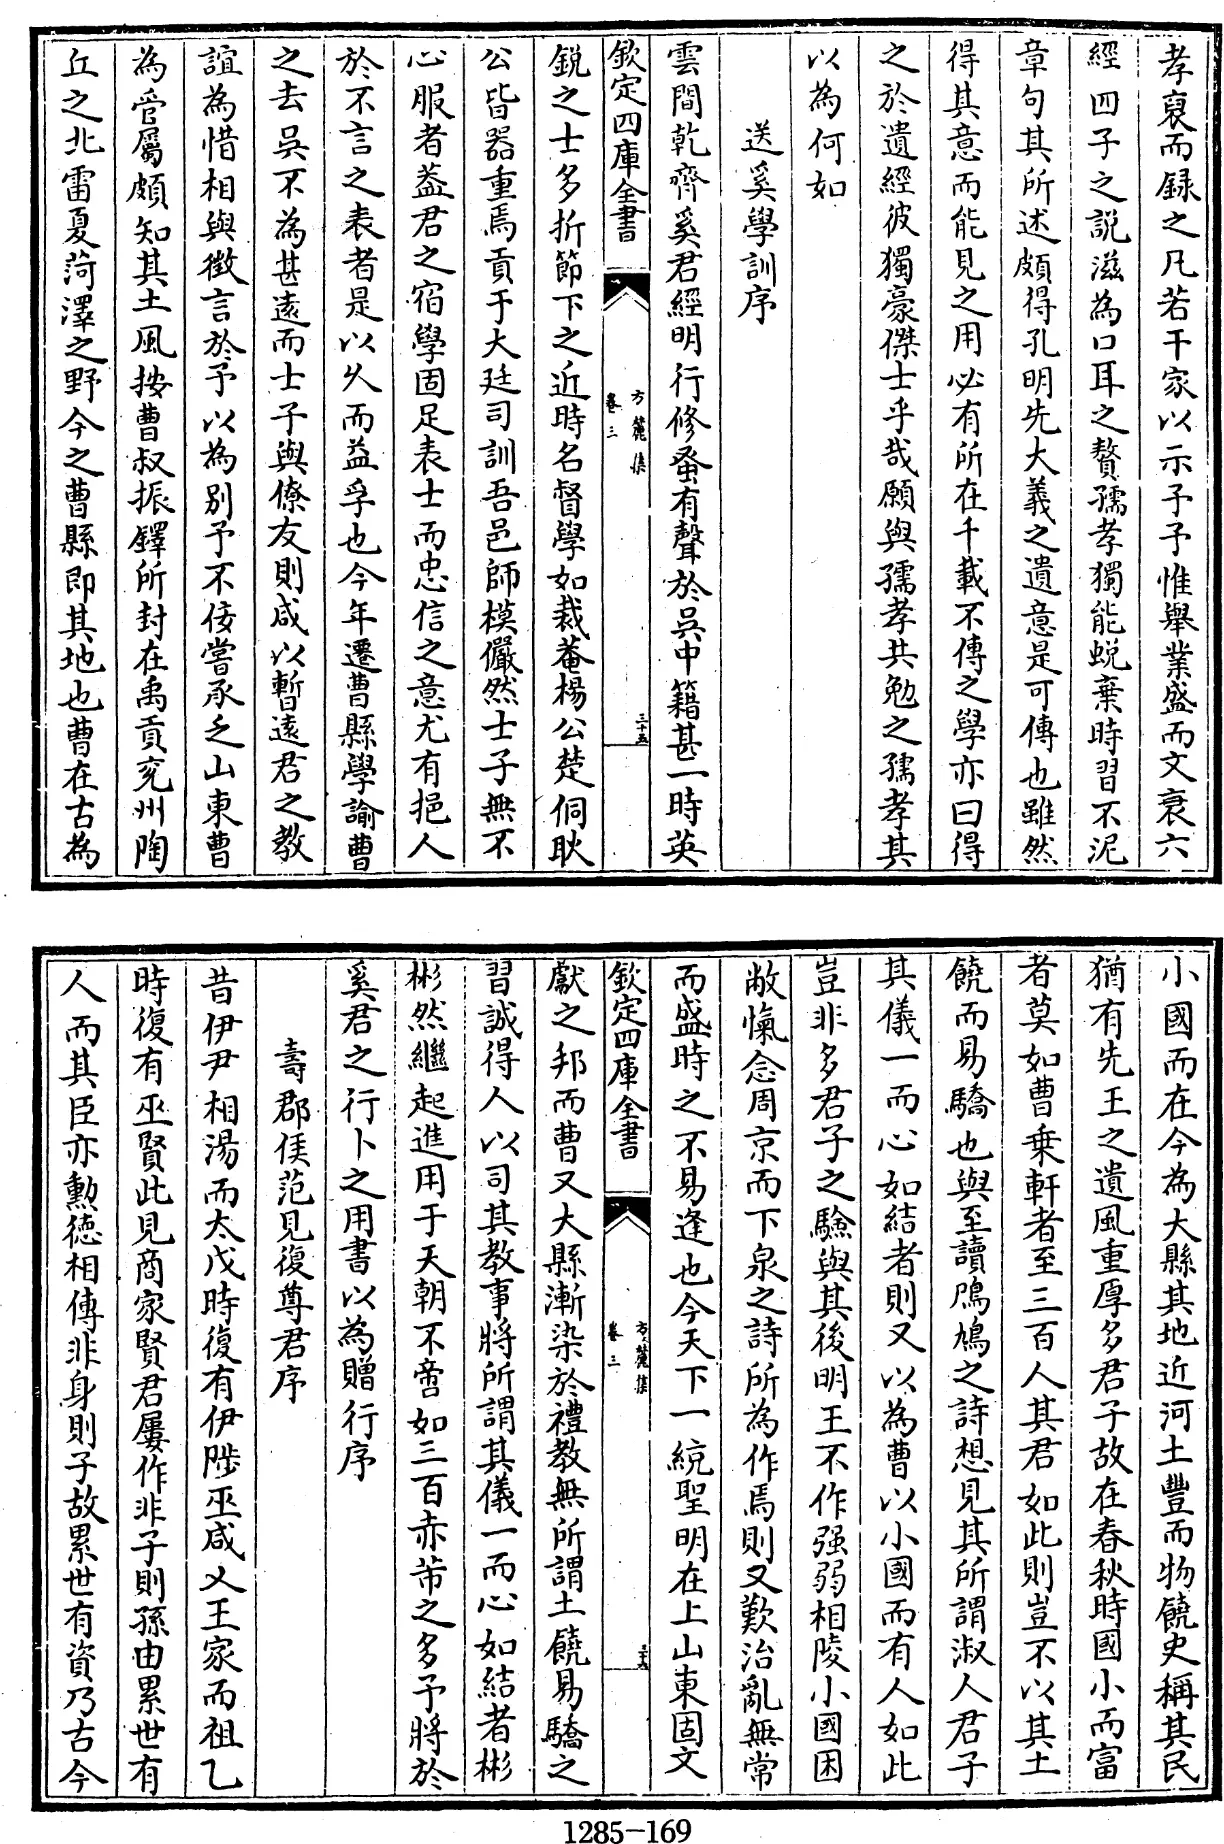 孝裒而録之凡若干家以示予予惟舉業盛而文衰六
經四子之説滋為口耳之贅孺孝獨能蜕棄時習不泥
章句其所述頗得孔明先大義之遺意是可傳也雖然
得其意而能見之用必有所在千載不傳之學亦曰得
之於遺經彼獨豪傑士乎哉願與孺孝共勉之孺孝其
以為何如
送奚學訓序
雲間乾齊奚君經明行修蚤有聲於吳中籍甚一時英
欽定四庫全書
方麓集
卷三
三十五
鋭之士多折節下之近時名督學如裁菴楊公楚侗耿
公皆器重焉貢于大廷司訓吾邑師模儼然士子無不
心服者葢君之宿學固足表士而忠信之意尤有挹人
於不言之表者是以久而益孚也今年遷曹縣學諭曹
之去吳不為甚遠而士子與僚友則咸以暫遠君之教
誼為惜相與徵言於予以為别予不佞嘗承乏山東曹
為管屬頗知其土風按曹叔振鐸所封在禹貢兖州陶
丘之北雷夏菏澤之野今之曹縣即其地也曹在古為
小國而在今為大縣其地近河土豐而物饒史稱其民
猶有先王之遺風重厚多君子故在春秋時國小而富
者莫如曹乗軒者至三百人其君如此則豈不以其土
饒而易驕也與至讀鳲鳩之詩想見其所謂淑人君子
其儀一而心如結者則又以為曹以小國而有人如此
豈非多君子之驗與其後明王不作强弱相陵小國困
敝愾念周京而下泉之詩所為作焉則又歎治亂無常
而盛時之不易逢也今天下一統聖明在上山東固文
欽定四庫全書
方麓集
卷三
三十六
獻之邦而曹又大縣漸染於禮教無所謂土饒易驕之
習誠得人以司其教事將所謂其儀一而心如結者彬
彬然繼起進用于天朝不啻如三百赤芾之多予將於
奚君之行卜之用書以為贈行序
壽郡侯范見復尊君序
昔伊尹相湯而太戊時復有伊陟巫咸乂王家而祖乙
時復有巫賢此見商家賢君屢作非子則孫由累世有
人而其臣亦勲德相傳非身則子故累世有資乃古今
1285-169